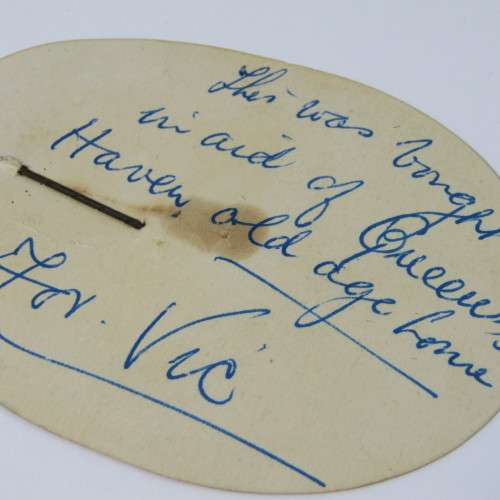 This was bought
in aid of Queen's
Haven, old age home
For. Vic